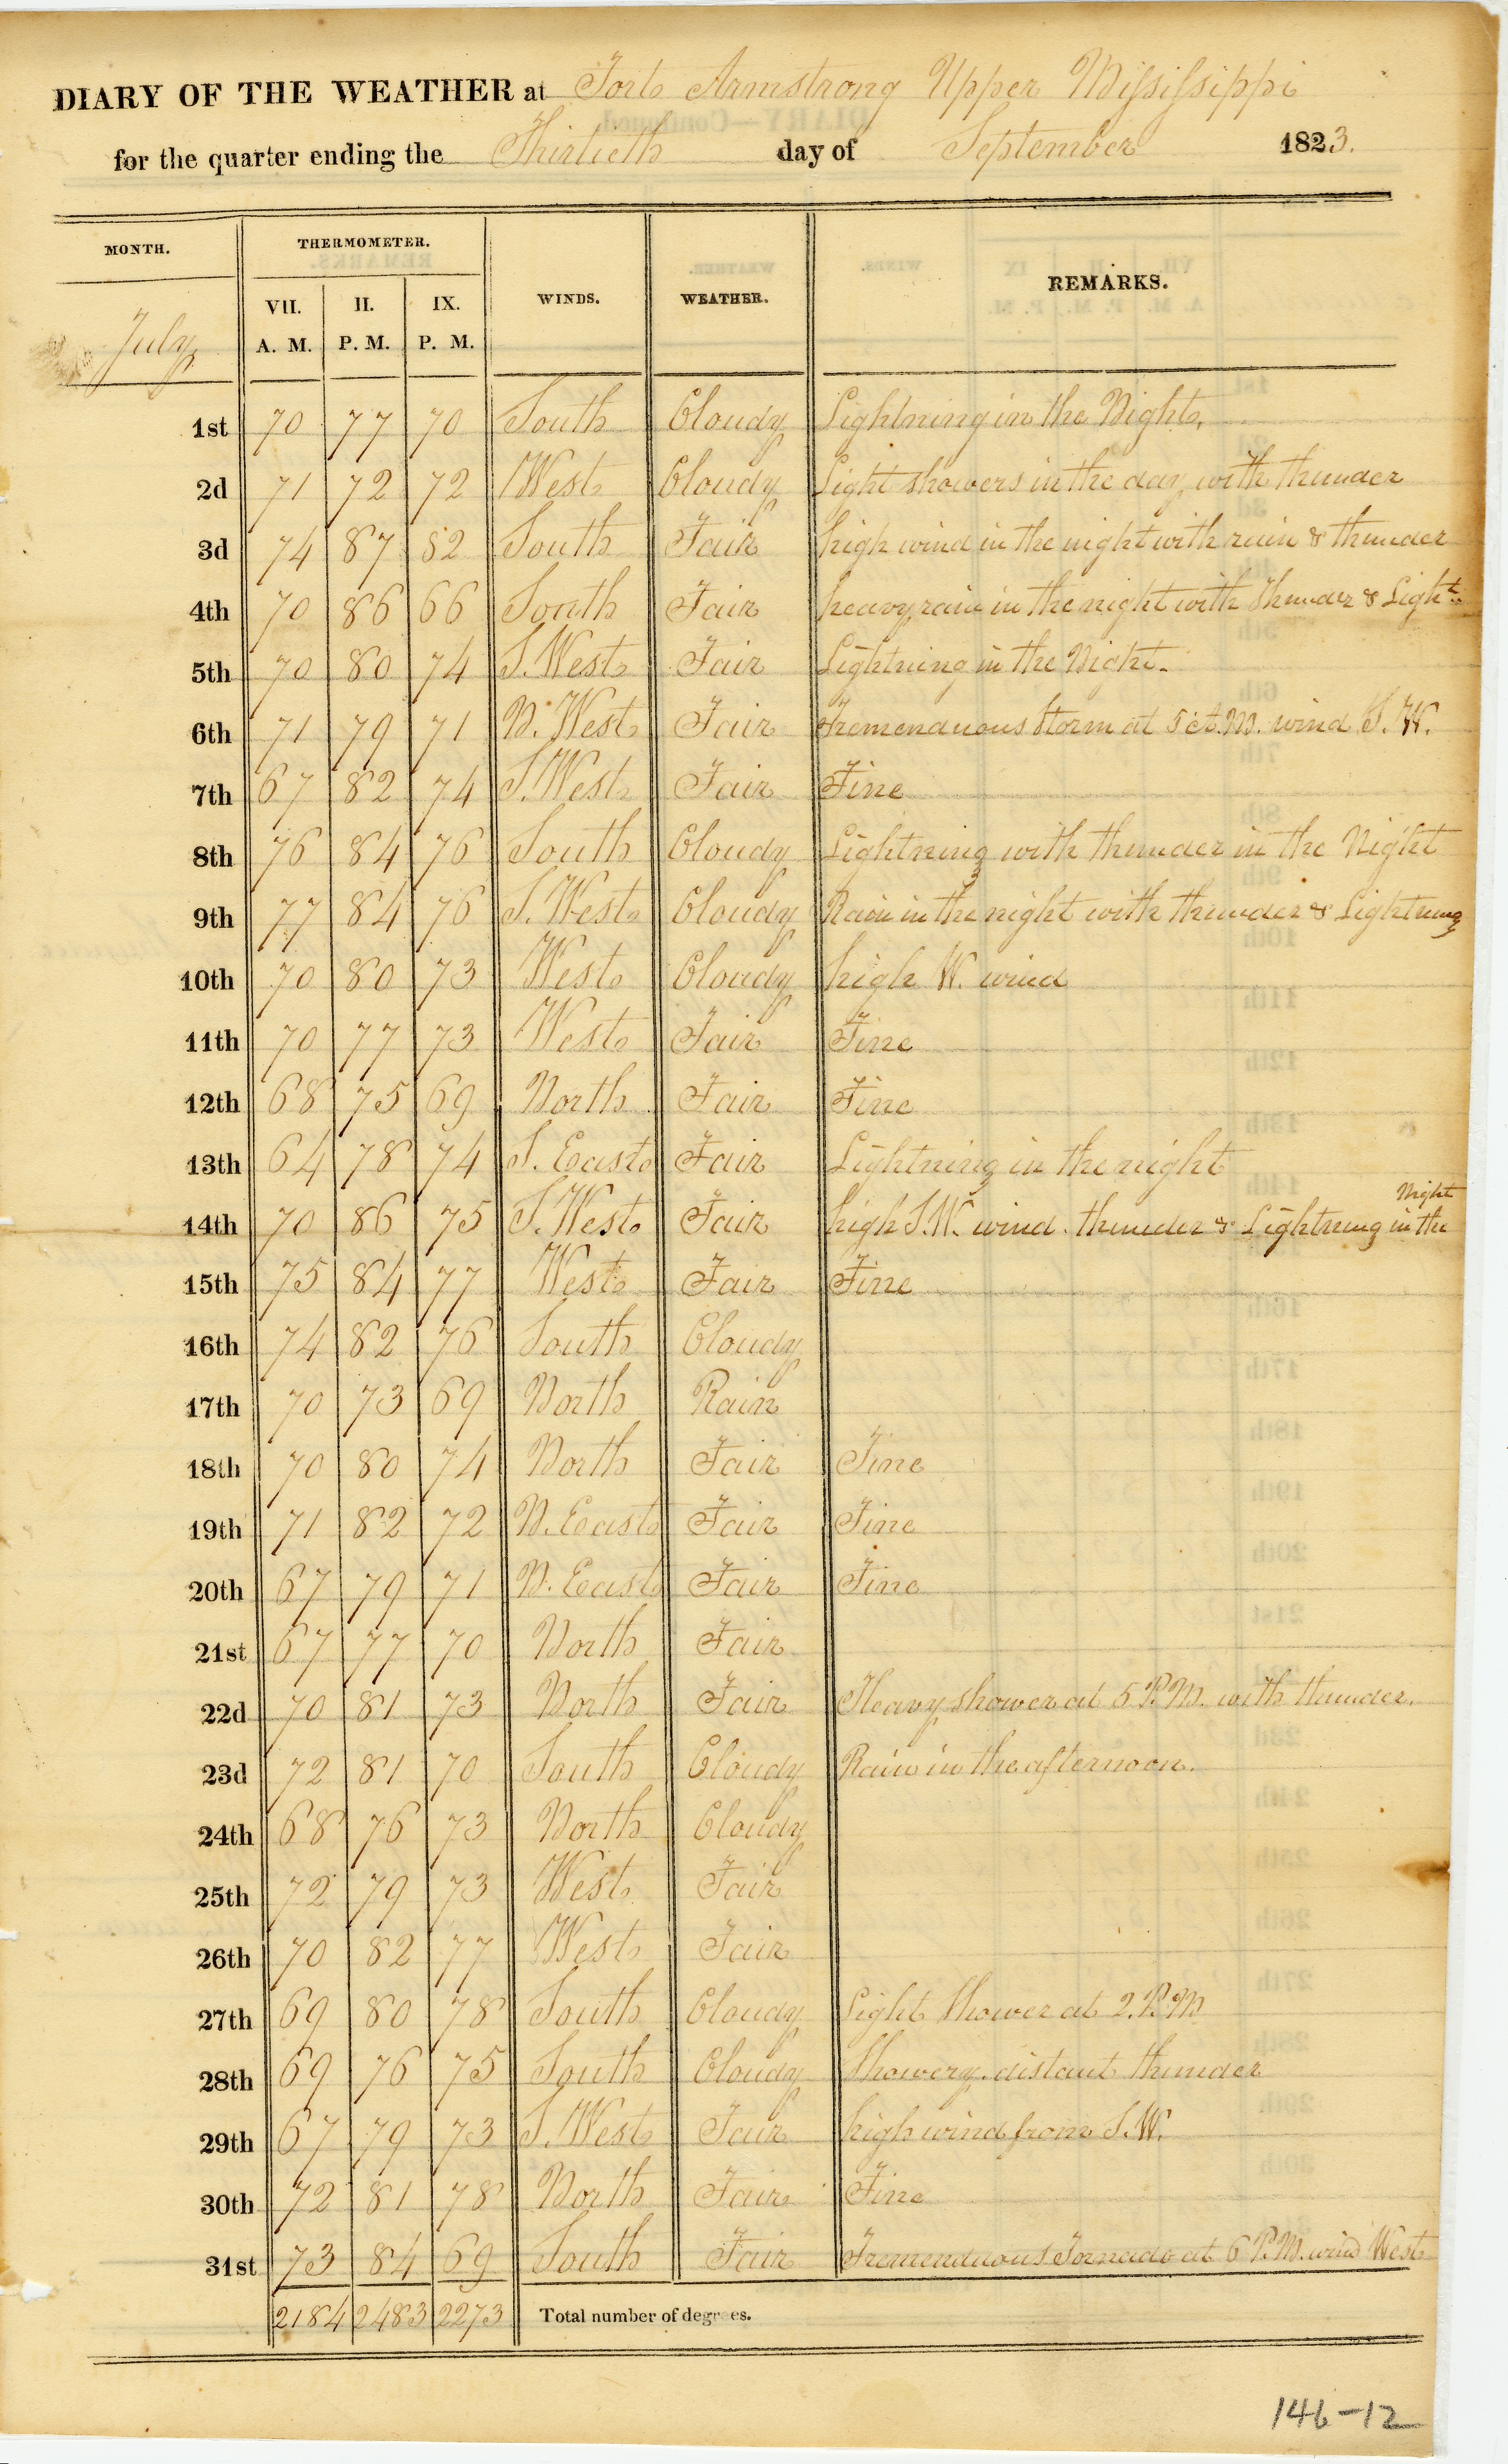 DIARY OF THE WEATHER at Fort Armstrong Upper Missisippi
for the quarter ending the Thirtieth day of September 1823.
MONTH. THERMOMETER. WINDS. WEATHER. REMARKS.
VII. II. IX.
July A. M. P. M. P. M.
1st 70 77 70 South Cloudy Lightning in the Night.
2d 71 72 72 West Cloudy Light showers in the day with thunder
3d 74 87 82 South Fair high wind in the night with rain & thunder
4th 70 86 66 South Fair heavy rain in the night with thunder & Light..
5th 70 80 74 S. West Fair Lightning in the Night.
6th 71 79 71 N. West Fair Tremenduous Storm at 5 A.M. wind S.W.
7th 67 82 74 S. West Fair Fine
8th 76 84 76 South Cloudy Lightning with thunder in the Night
9th 77 84 76 S. West Cloudy Rain in the night with thunder & Lightning
10th 70 80 73 West Cloudy high W. wind
11th 70 77 73 West Fair Fine
12th 68 75 69 North Fair Fine
13th 64 78 74 S. East Fair Lightning in the night
14th 70 86 75 S. West Fair high S.W. wind. thunder & Lightning in the Night
15th 75 84 77 West Fair Fine
16th 74 82 76 South Cloudy
17th 70 73 69 North Rain
18th 70 80 74 North Fair Fine
19th 71 82 72 N. East Fair Fine
20th 67 79 71 N. East Fair Fine
21st 67 77 70 North Fair
22d 70 81 73 North Fair Heavy shower at 5 P.M. with thunder.
23d 72 81 70 South Cloudy Rain in the afternoon.
24th 68 76 73 North Cloudy
25th 72 79 73 West Fair
26th 70 82 77 West Fair
27th 69 80 78 South Cloudy Light Shower at 2. P.M
28th 69 76 75 South Cloudy Showery. distant thunder
29th 67 79 73 S. West Fair high wind from S.W.
30th 72 81 78 North Fair Fine
31st 73 84 69 South Fair Tremenduous Tornado at 6 P.M. wind West
2184 2483 2273 Total number of degrees.
146-12